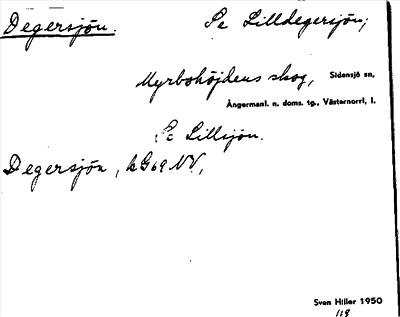 Degersjön. Se Lilldegersjön;
Myrbohöjdens skog, Sidensjö sn,
Ångermanl. n. doms. tg., Västernorrl, l.
Se Lillsjön.
Degersjön, kG69 NV.,
Sven Hiller 1950
118